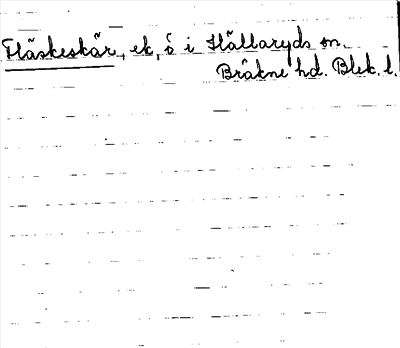 Fläskeskär, ek, ö i Hällaryds sn.
Bräkne hd. Blek. l.